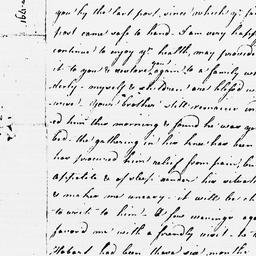 you by the last post, since which yr
post came safe to hand. I am very happ
continue to enjoy yr health, may
it to you & restore you again to a family
myself & children are blessed
your brother still remains in
ed him this morning & found he was
bed. the gathering in his has been
has procured him relief from pain, but
appetite & of sleep render his situation
& makes me uneasy. it will be
to write to him. A few mornings ago
favord me with a friendly visit. he
Hobart had been there six months